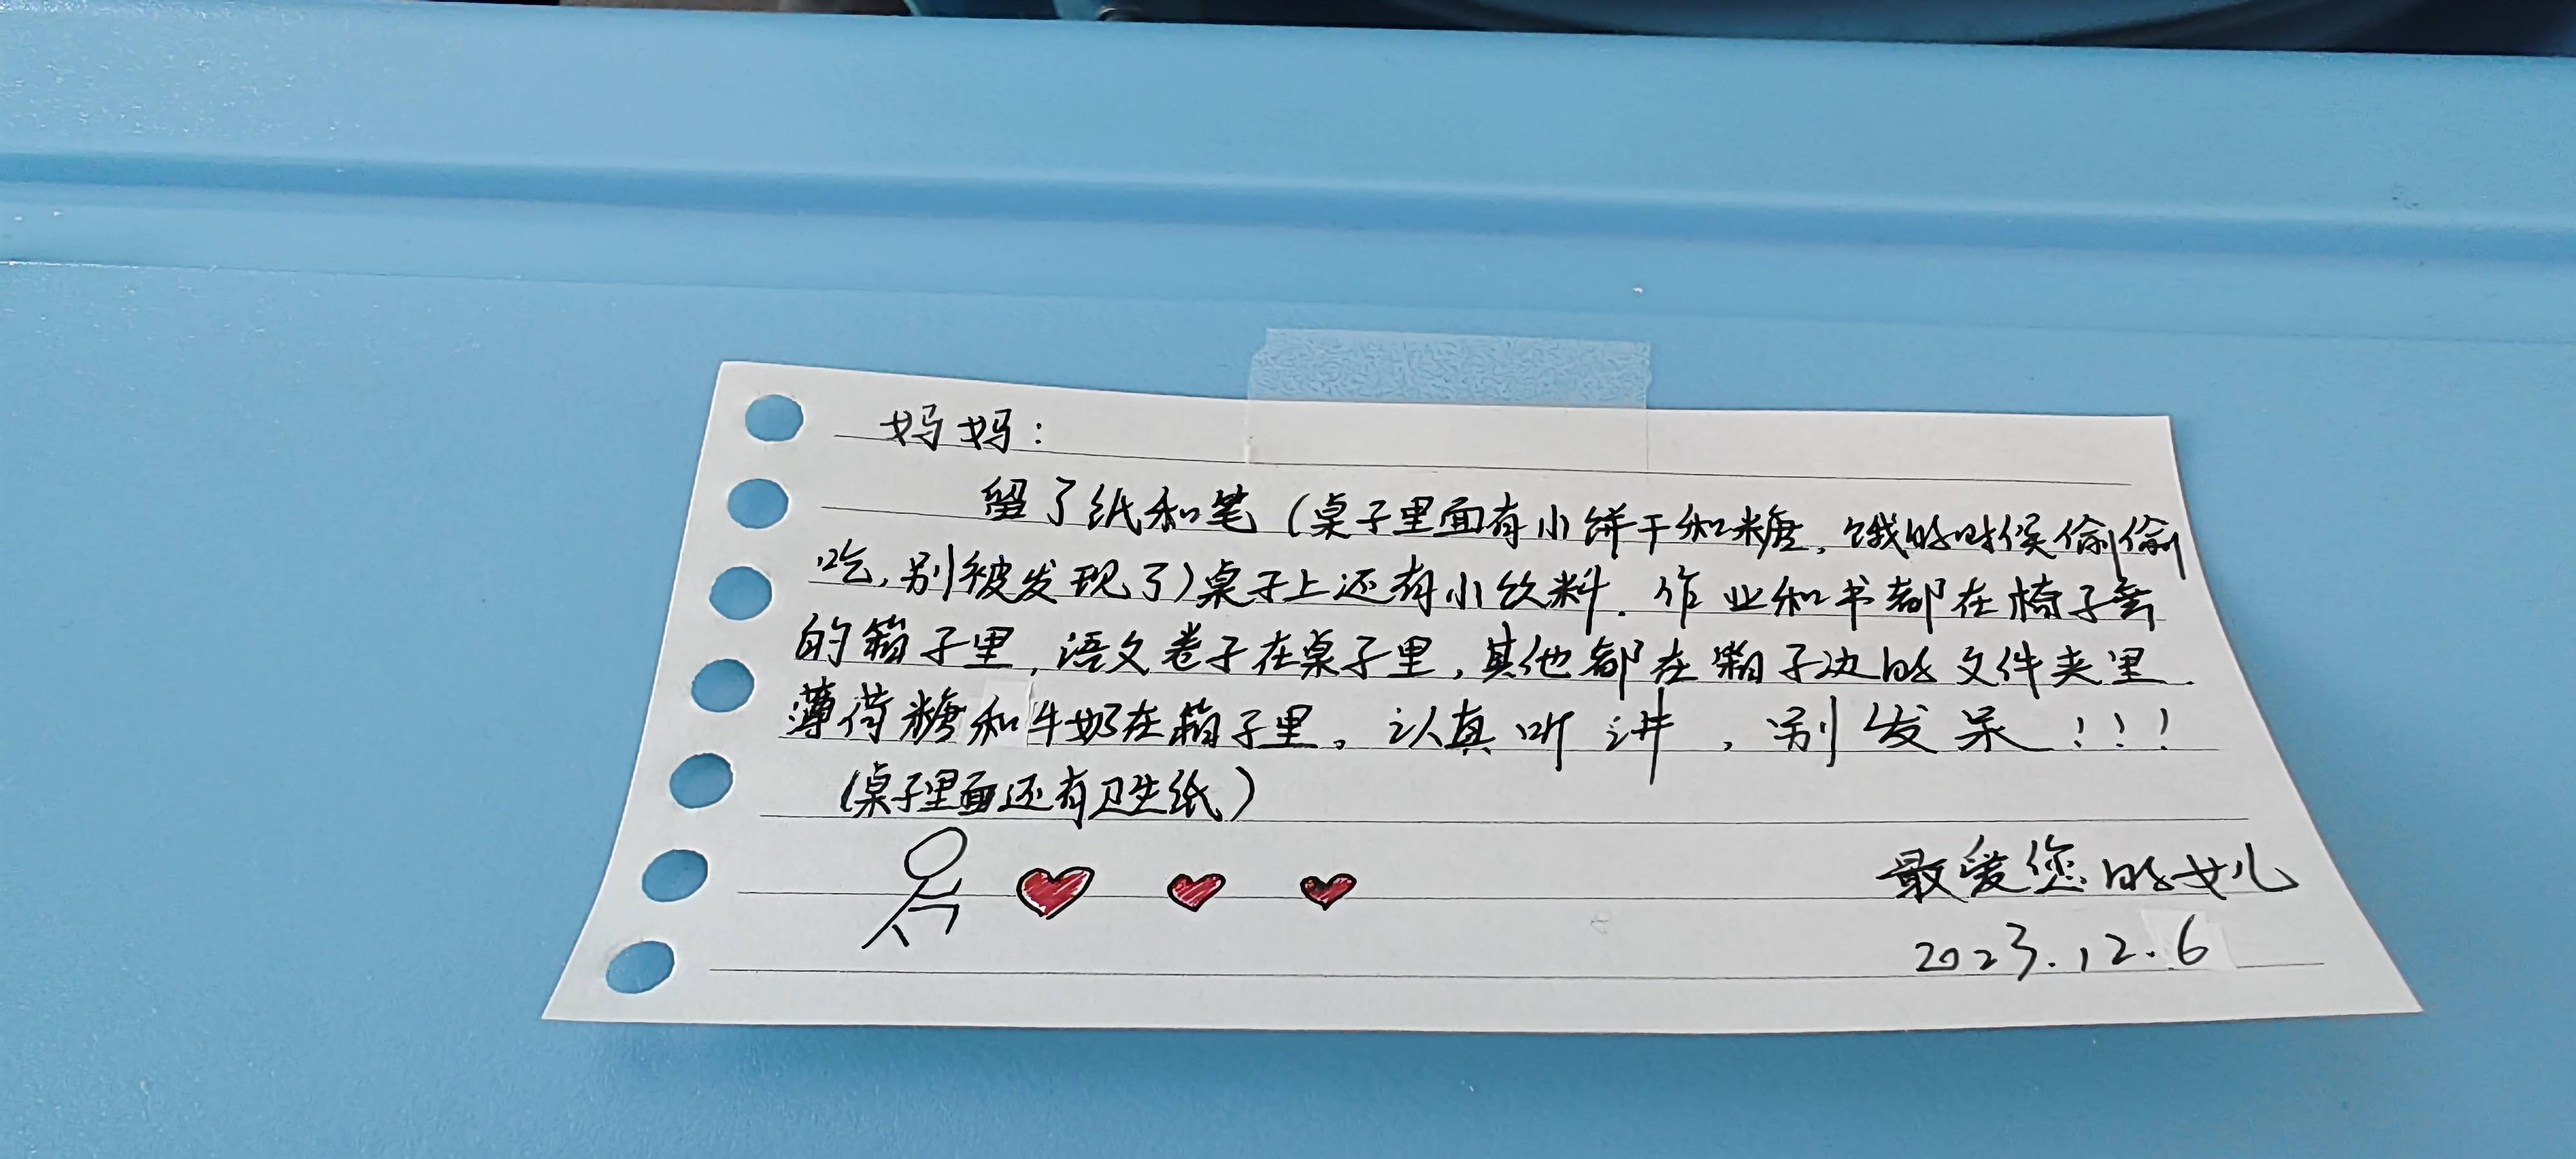 妈妈：
留了纸和笔（桌子里面有小饼干和糖，饿的时候偷偷
吃，别被发现了）桌子上还有小饮料．作业和书都在椅子旁
的箱子里，语文卷子在桌子里，其他都在箱子边的文件夹里．
薄荷糖和牛奶在箱子里。认真听讲，别发呆！！！
（桌子里面还有卫生纸）
最爱您的女儿
2023.12.6